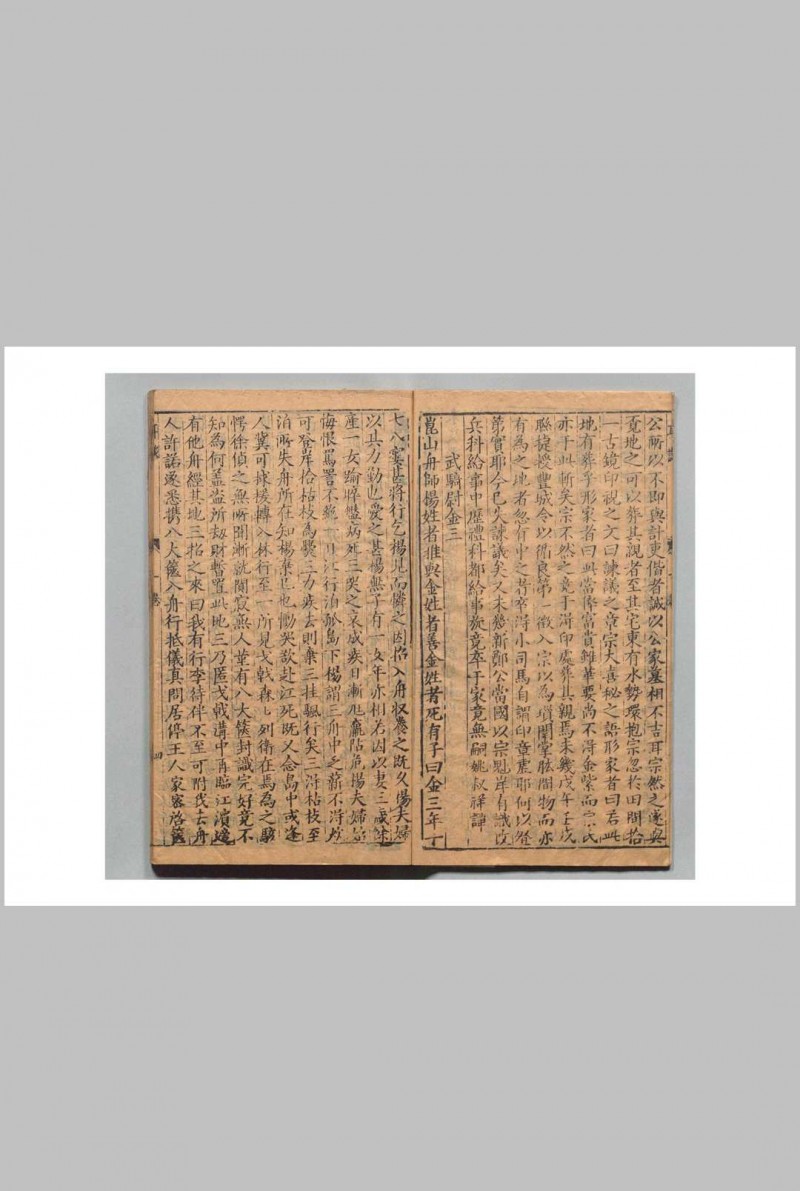 公所以不即與計吏偕者誠以公家墓相不吉耳宗然之遂與
覔地之可以葬其親者至其宅東有水勢環抱宗忽於田間拾
一古鏡印視之文曰諫議之章宗大喜秘之語形家者曰君此
地有葬乎形家者曰此當俸富貴雖華要尚不得金紫而宗氏
亦于此斬矣宗不然之竟于得印處葬其親焉未幾戊午壬戌
聯捷授豐城令以循良第一徵入宗以為瑣闥掌肱間物而亦
有為之地者忽有中之者卒得小司馬自謂印章虛耶何以登
第實耶今已失諫議矣又未幾新鄭公當國以宗魁岸有識改
兵科給事中歷禮科都給事旋竟卒于家竟無嗣姚叔祥譚
武騎尉金三
崑山舟師楊姓者推與金姓者善金姓者死有子曰金三年十
七八窶甚將行乞楊見而憐之因招入舟收養之既久楊夫婦
以其力勤也愛之甚楊無子有一女年亦相若因以妻三歲餘
産一女踰晬盤病死三哭之哀成疾日漸尪羸阽危楊夫婦始
悔恨罵詈不絶一日江行泊孤島下楊謂三舟中乏薪不得炊
可登岸拾枯枝為爨三力疾去則棄三挂颿行矣三得枯枝至
泊所失舟所在知楊棄己也慟哭欲赴江死既又念島中或逢
人冀可援援轉入林行至一所見戈戟森森列衛在焉為之駭
愕徐偵之無所聞漸就閴寂無人葦有八大篋封識完好竟不
知為何蓋盜所刼財暫置此地三乃匿戈戟溝中再臨江濱適
有他舟經其地三招之來曰我有行李待伴不至可附我去舟
人許諾遂悉携八大篋入舟行抵儀真問居停主人家密啓篋